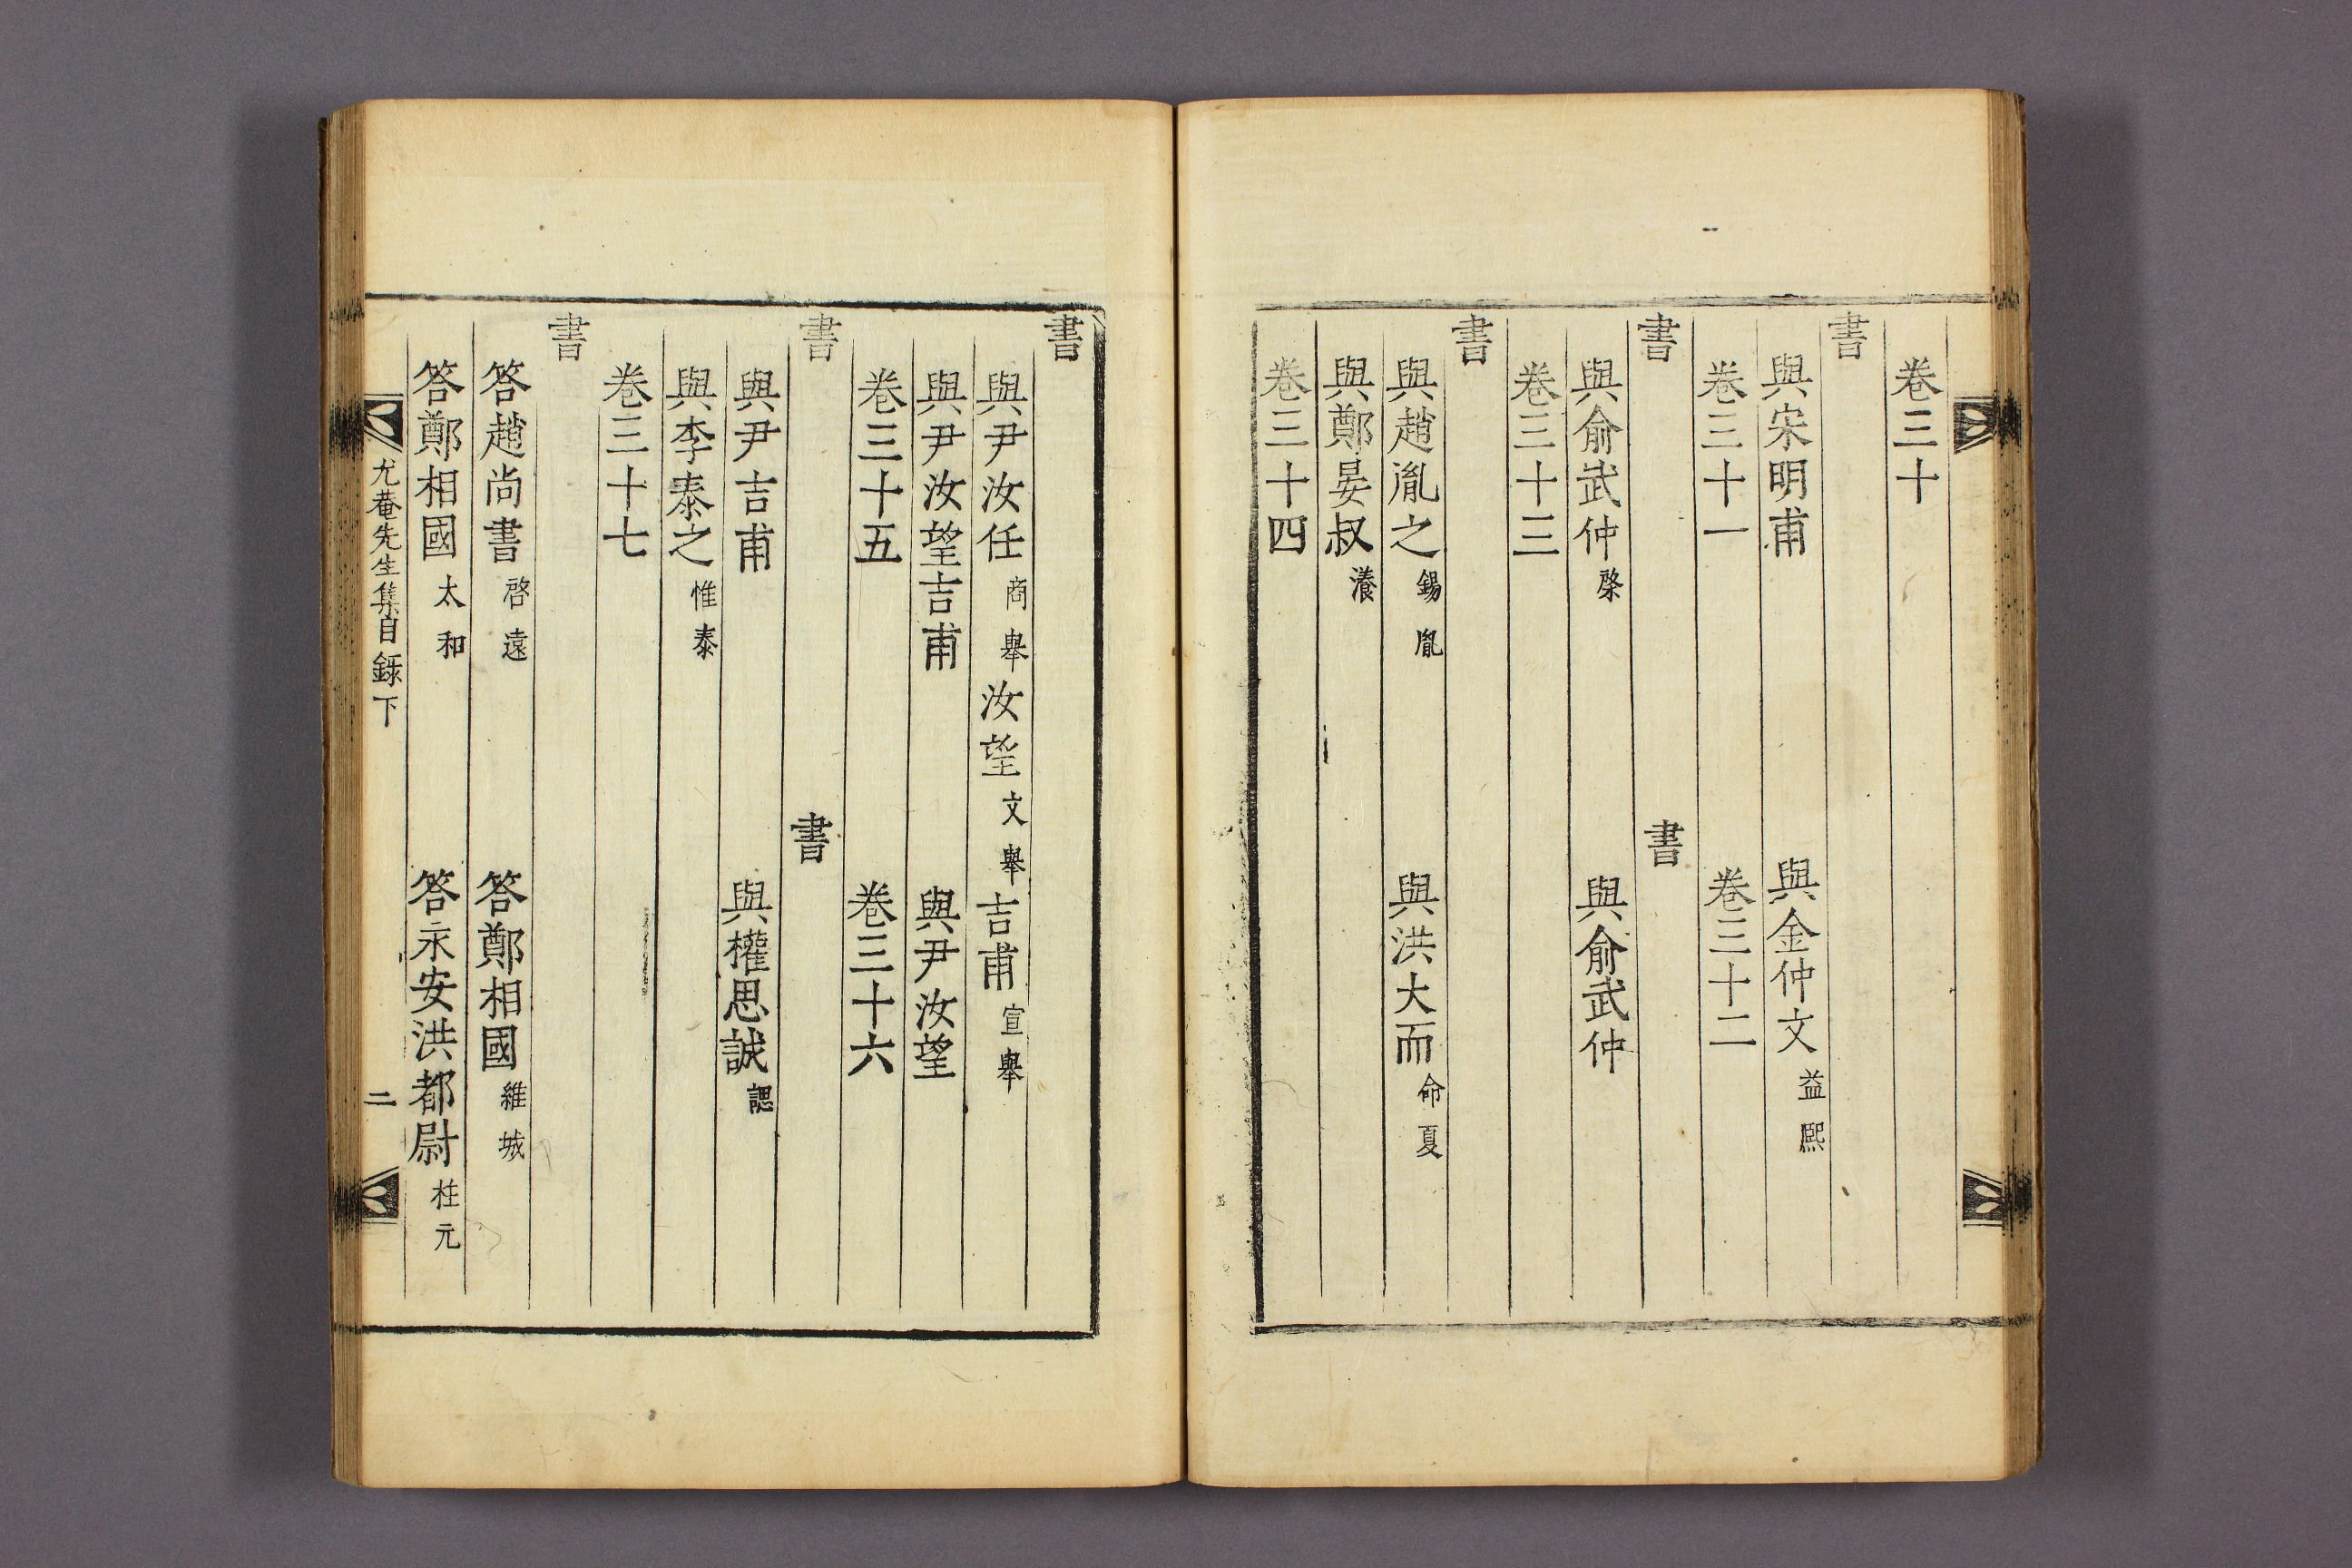 卷三十
書
與宋明甫 與金仲文 益熙
卷三十一 卷三十二
書 書
與俞武仲 棨 與俞武仲
卷三十三
書
與趙胤之 錫胤 與洪大而 命夏
與鄭晏叔 瀁
卷三十四
書
與尹汝任 商舉 汝望 文舉 吉甫 宣舉
與尹汝望吉甫 與尹汝望
卷三十五 卷三十六
書 書
與尹吉甫 與權思誠 諰
與李泰之 惟泰
卷三十七
書
答趙尚書 啓遠 答鄭相國 維城
答鄭相國 太和 答永安洪都尉 柱元
尤菴先生集目錄下 二